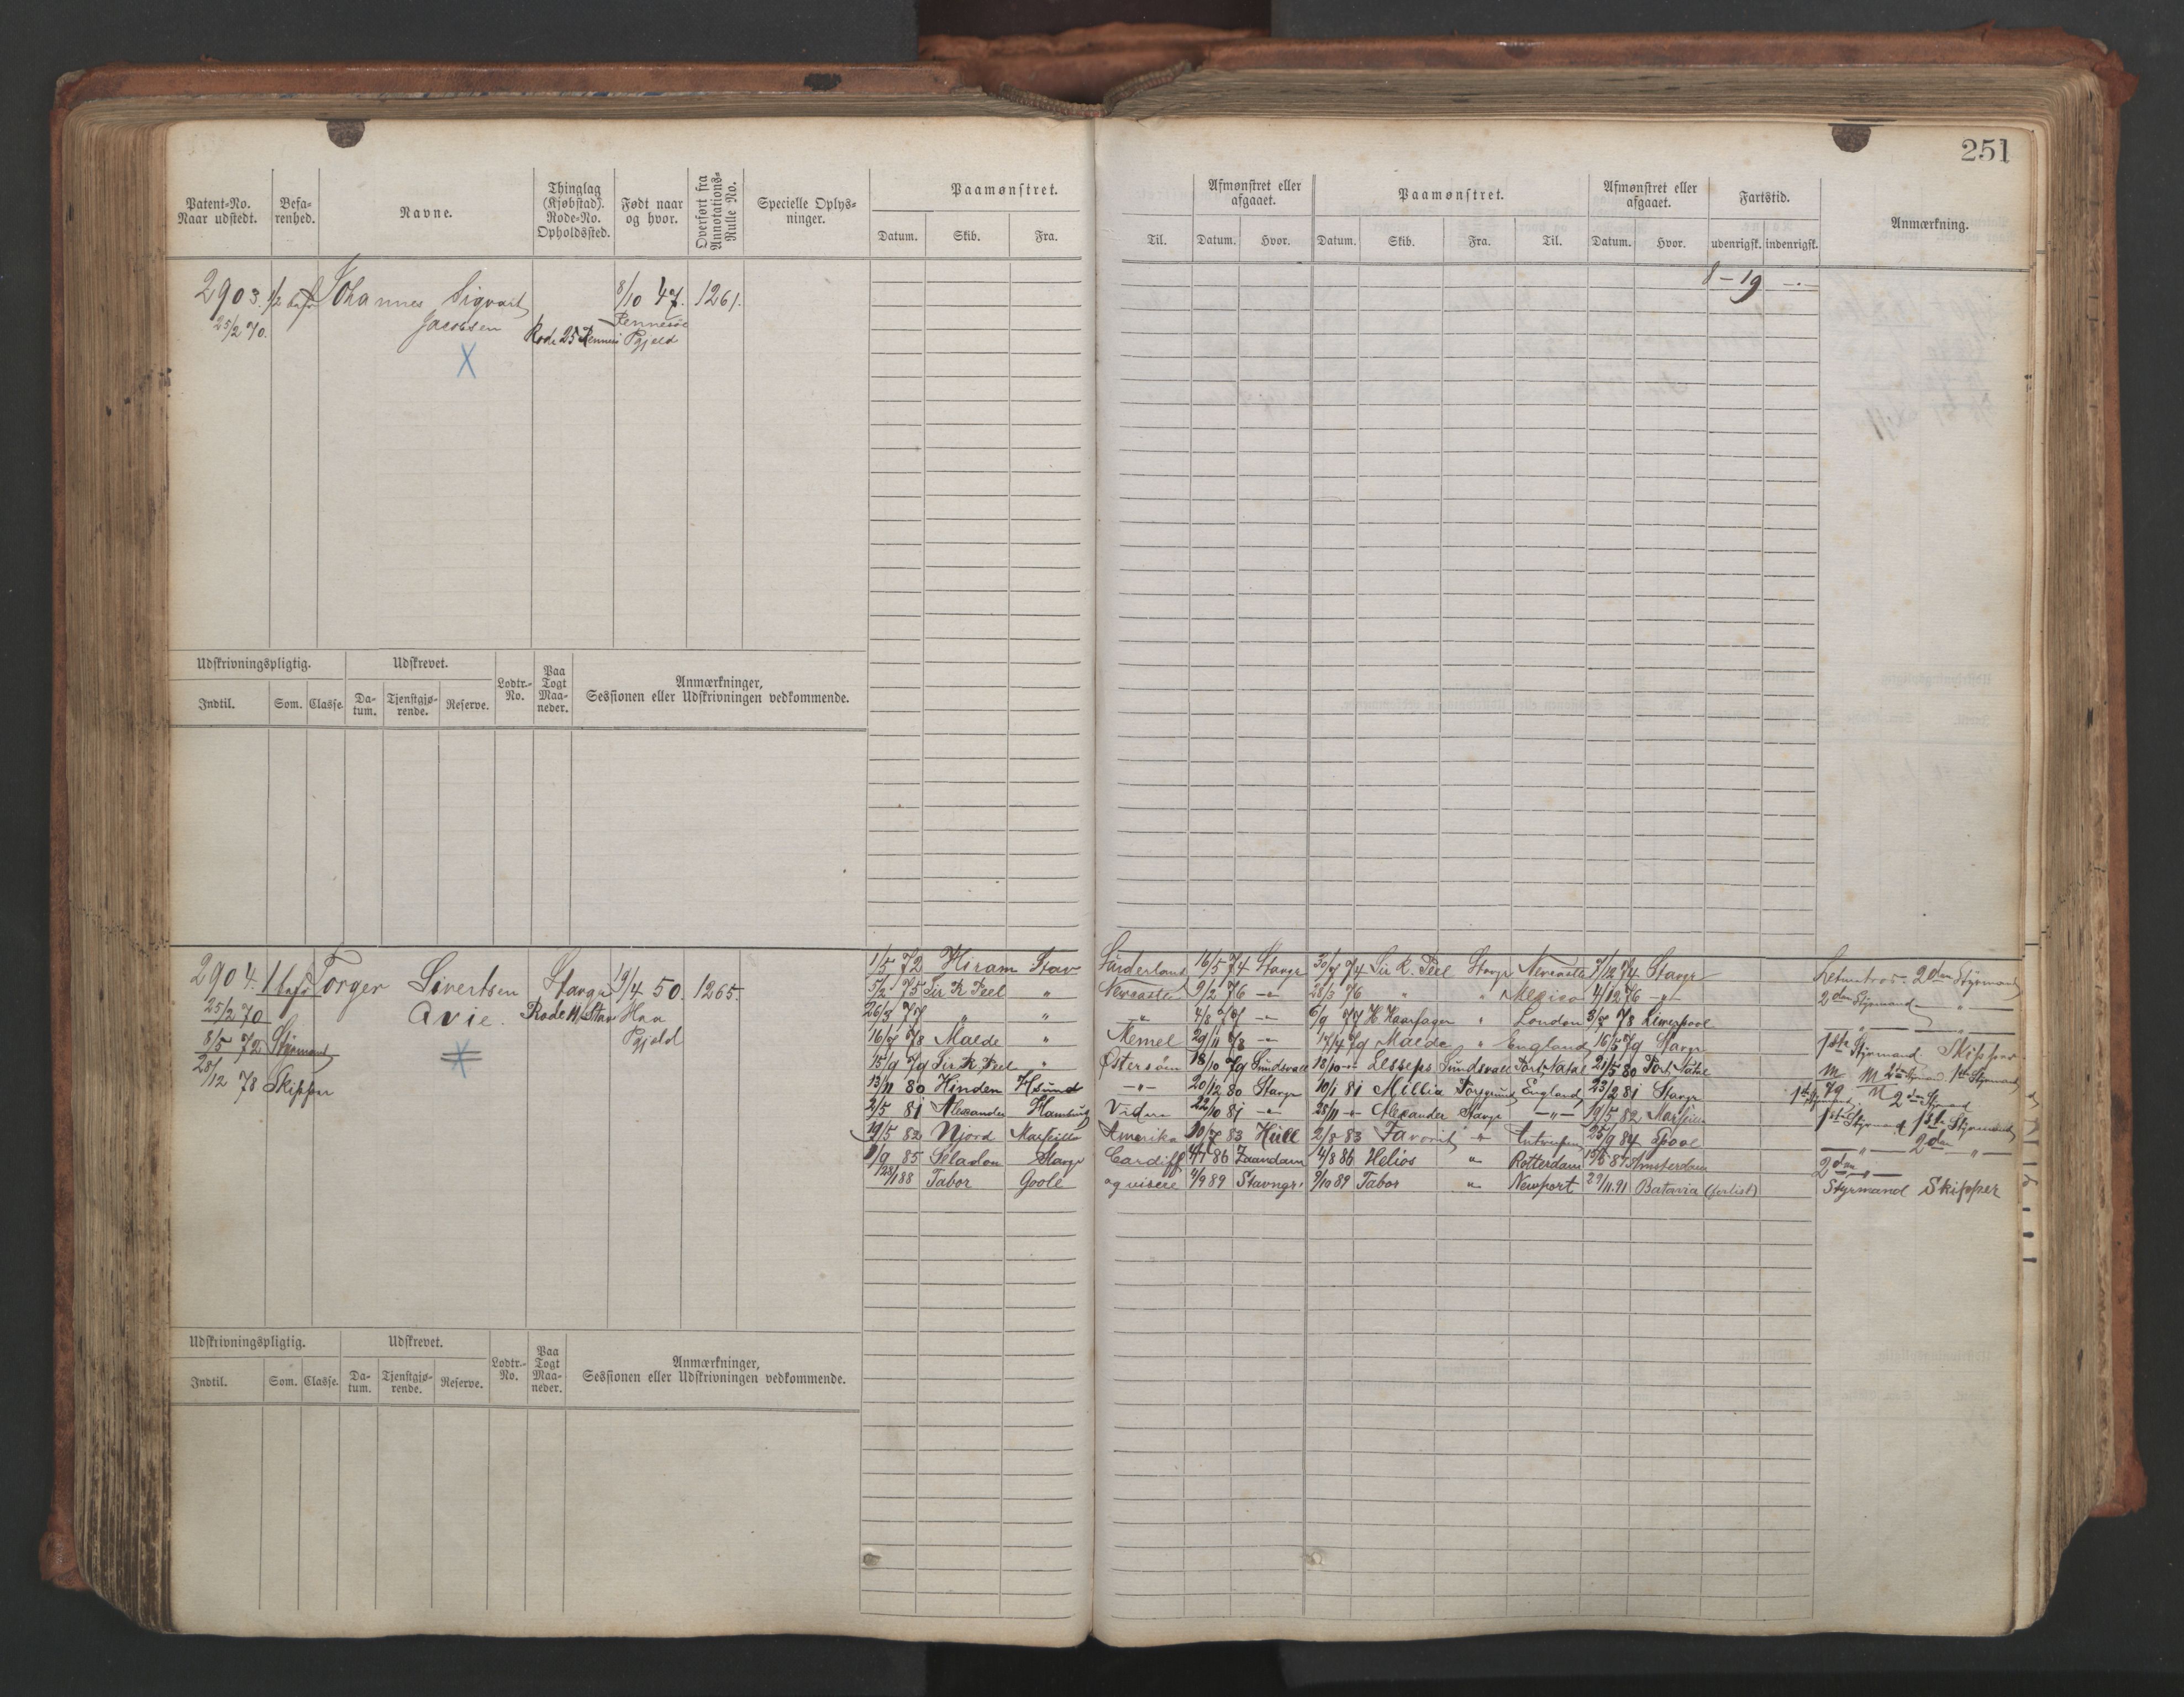 251
Patent-No. Naar udstedt. Befa-renhed. Navne. Thinglag (Kjøbstad). Rode-No. Opholdssted. Født naar og hvor. Overført fra Annotations-Rulle No. Specielle Oplys-ninger. Paamønstret. Datum. Skib. Fra.
Til. Afmønstret eller afgaaet. Datum. Hvor. Paamønstret. Datum. Skib. Fra. Til. Afmønstret eller afgaaet. Datum. Hvor. Fartstid. udenrigsk. indenrigsk. Anmærkning.
2903. 1/2 bef Johannes Sigvart 8/10 47. 1261. 8-19
25/2 70. Jacobsen Rennesø
Rode 25 Rennes Pgjeld
X
Udskrivningspligtig. Udskrevet. Lodtr.-No. Paa Togt Maa-neder. Anmærkninger, Sessionen eller Udskrivningen vedkommende.
Indtil. Som. Classe. Da-tum. Tjenstgjø-rende. Reserve.
2904. 1 bef Torger Sivertsen Stavgr 19/4 50. 1265.
25/2 70 Avie. Rode 11 Stav Haa
8/5 72 Styrmand Pgjeld
28/12 78 Skipper
1/5 72 Hiram Stav Sunderland 16/5 74 Stavgr 30/7 74 Sir R. Peel Stavgr Newcastle 7/12 74 Stavgr 2den Styrmand
5/2 75 Sir R Peel " Newcastle 9/2 76 -"- 28/3 76 " " Mexico 4/12 76 -"- 2den Styrmand "
26/3 77 " " " 4/8 77 -"- 6/9 77 H Haarfager " London 3/5 78 Liverpool " "
16/7 78 Malde " Memel 29/11 78 -"- 17/4 79 Malde " England 16/5 79 Stavgr 1ste Styrmand. Skipper
15/9 79 Sir R. Peel " Østersøen 18/10 79 Sundsvall 18/10 -"- Lesseps Sundsvall Port Natal 21/5 80 Port Natal
13/11 80 Hinden Hsund -"- 20/12 80 Stavgr 10/1 81 Millia Porsgrund England 23/2 81 Stavgr
2/5 81 Alexander Hamburg Viden 22/10 81 -"- 28/11 -"- Alexander Stavgr -"- 19/5 82 Marseille 1ste Styrmand 1ste Styrmand
19/5 82 Njord Marseille Amerika 10/7 83 Hull 2/8 83 Favorit " Antverpen 25/9 84 Poole " 2den "
9/9 85 Seladon Stavgr Cardiff 4/7 86 Zaandam 14/8 86 Helios " Rotterdam 15/5 87 Amsterdam 2den "
23/1 88 Tabor Goole og videre 2/9 89 Stavngr. 9/10 89 Tabor " Newport 29/11.91 Batavia (forlist) Styrmand Skipper
Udskrivningspligtig. Udskrevet. Lodtr.-No. Paa Togt Maa-neder. Anmærkninger, Sessionen eller Udskrivningen vedkommende.
Indtil. Som. Classe. Da-tum. Tjenstgjø-rende. Reserve.